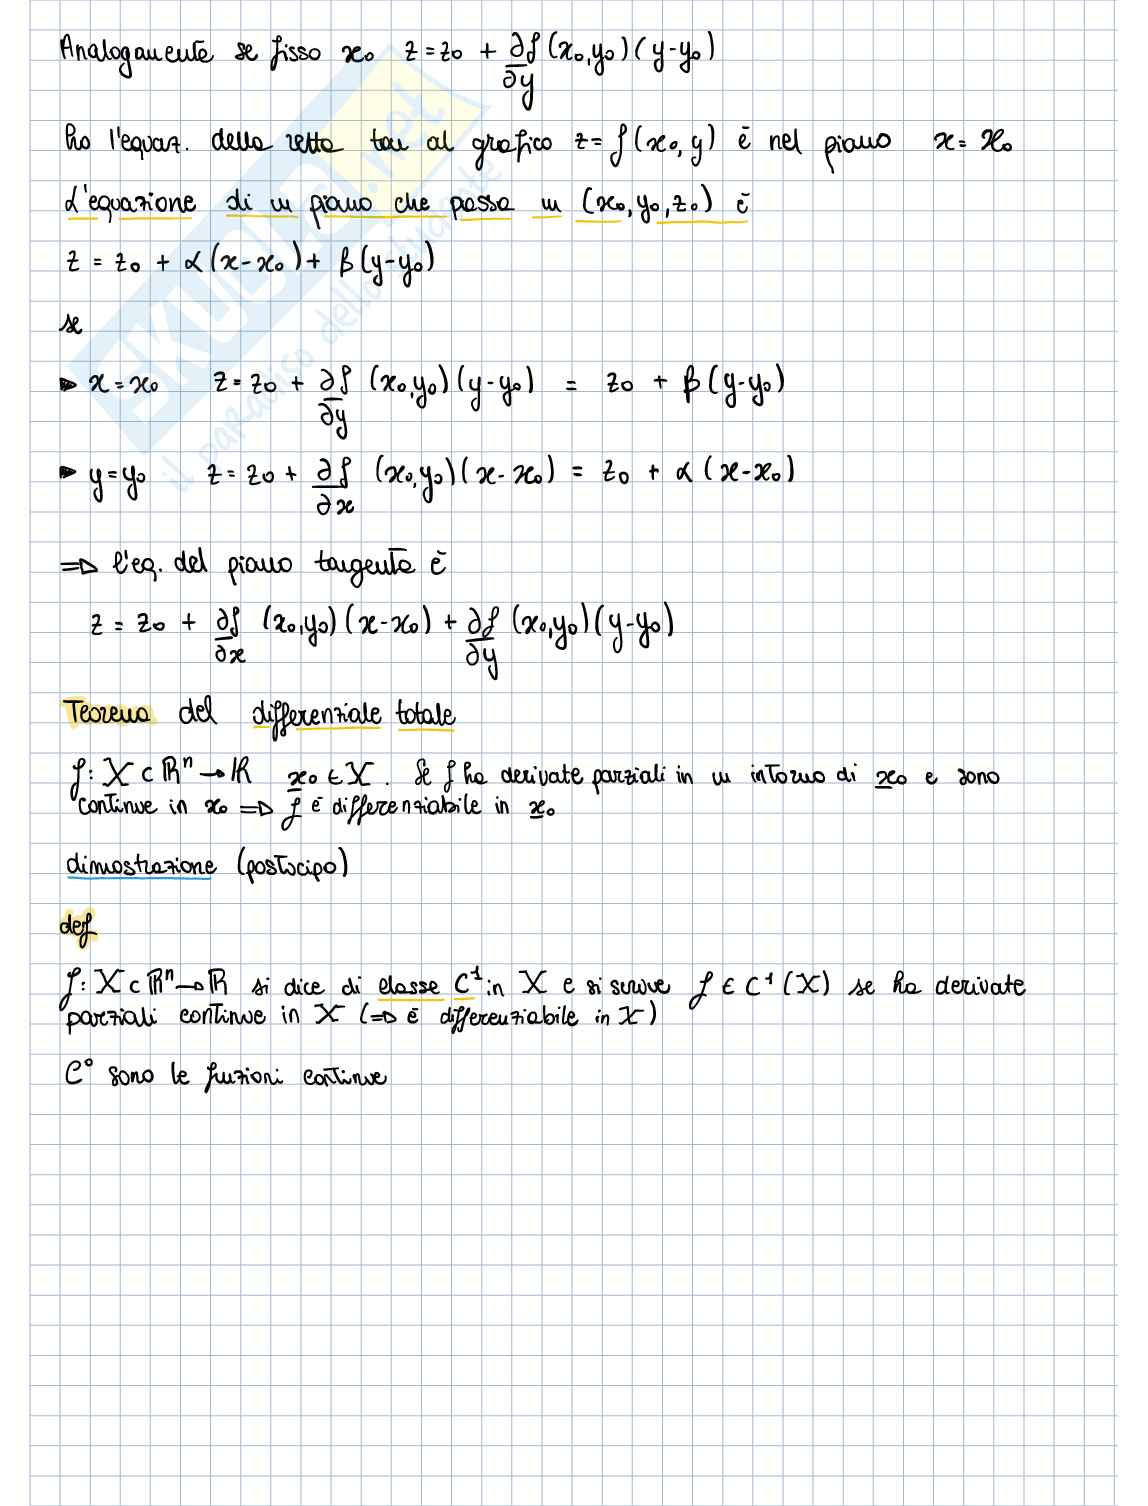 Analogamente se fisso x₀ z = z₀ + ∂f/∂y (x₀,y₀)(y-y₀)
ho l'equaz. della retta tan al grafico z = f(x₀, y) è nel piano x = x₀
L'equazione di un piano che passa in (x₀, y₀, z₀) è
z = z₀ + α(x-x₀) + β(y-y₀)
se
▸ x = x₀ z = z₀ + ∂f/∂y (x₀,y₀)(y-y₀) = z₀ + β(y-y₀)
▸ y = y₀ z = z₀ + ∂f/∂x (x₀,y₀)(x-x₀) = z₀ + α(x-x₀)
⇒ l'eq. del piano tangente è
z = z₀ + ∂f/∂x (x₀,y₀)(x-x₀) + ∂f/∂y (x₀,y₀)(y-y₀)
Teorema del differenziale totale
f: X ⊂ ℝⁿ → ℝ x₀ ∈ X. Se f ha derivate parziali in un intorno di x₀ e sono
continue in x₀ ⇒ f è differenziabile in x₀.
dimostrazione (posticipo)
def
f: X ⊂ ℝⁿ → ℝ si dice di classe C¹ in X e si scrive f ∈ C¹(X) se ha derivate
parziali continue in X (⇒ è differenziabile in X)
C⁰ sono le funzioni continue
SKUOLA.net
il paradiso dello studente